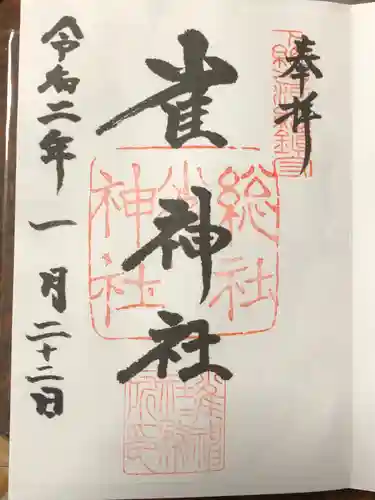 奉拝
雀神社
総社
雀
神社
令和二年一月二十二日